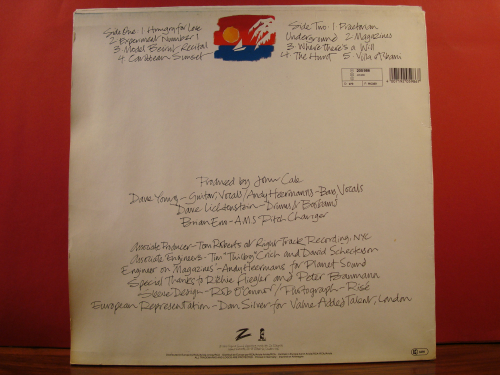 Side One: 1 Hungry for Love
2 Experiment Number 1
3 Model Beirut Recital
4 Caribbean Sunset
Side Two: 1 Praetorian
Underground 2 Magazines
3 Where There's a Will
4 The Hunt 5 Villa Albani
Produced by John Cale
Dave Young - Guitar, Vocals/Andy Heermanns - Bass, Vocals
Dave Lichtenstein - Drums &
Brian Eno - AMS Pitch Changer
Associate Producer - Tom Roberts at Right Track Recording, NYC
Associate Engineers - Tim "Thilboy" Crich and David Schecterson
Engineer on Magazines - Andy Heermanns for Planet Sound
Special Thanks to Richie Fliegler and Peter Baumann
Sleeve Design - Rob O'Connor/Photograph - Risé
European Representation - Dan Silver for Value Added Talent, London
Z